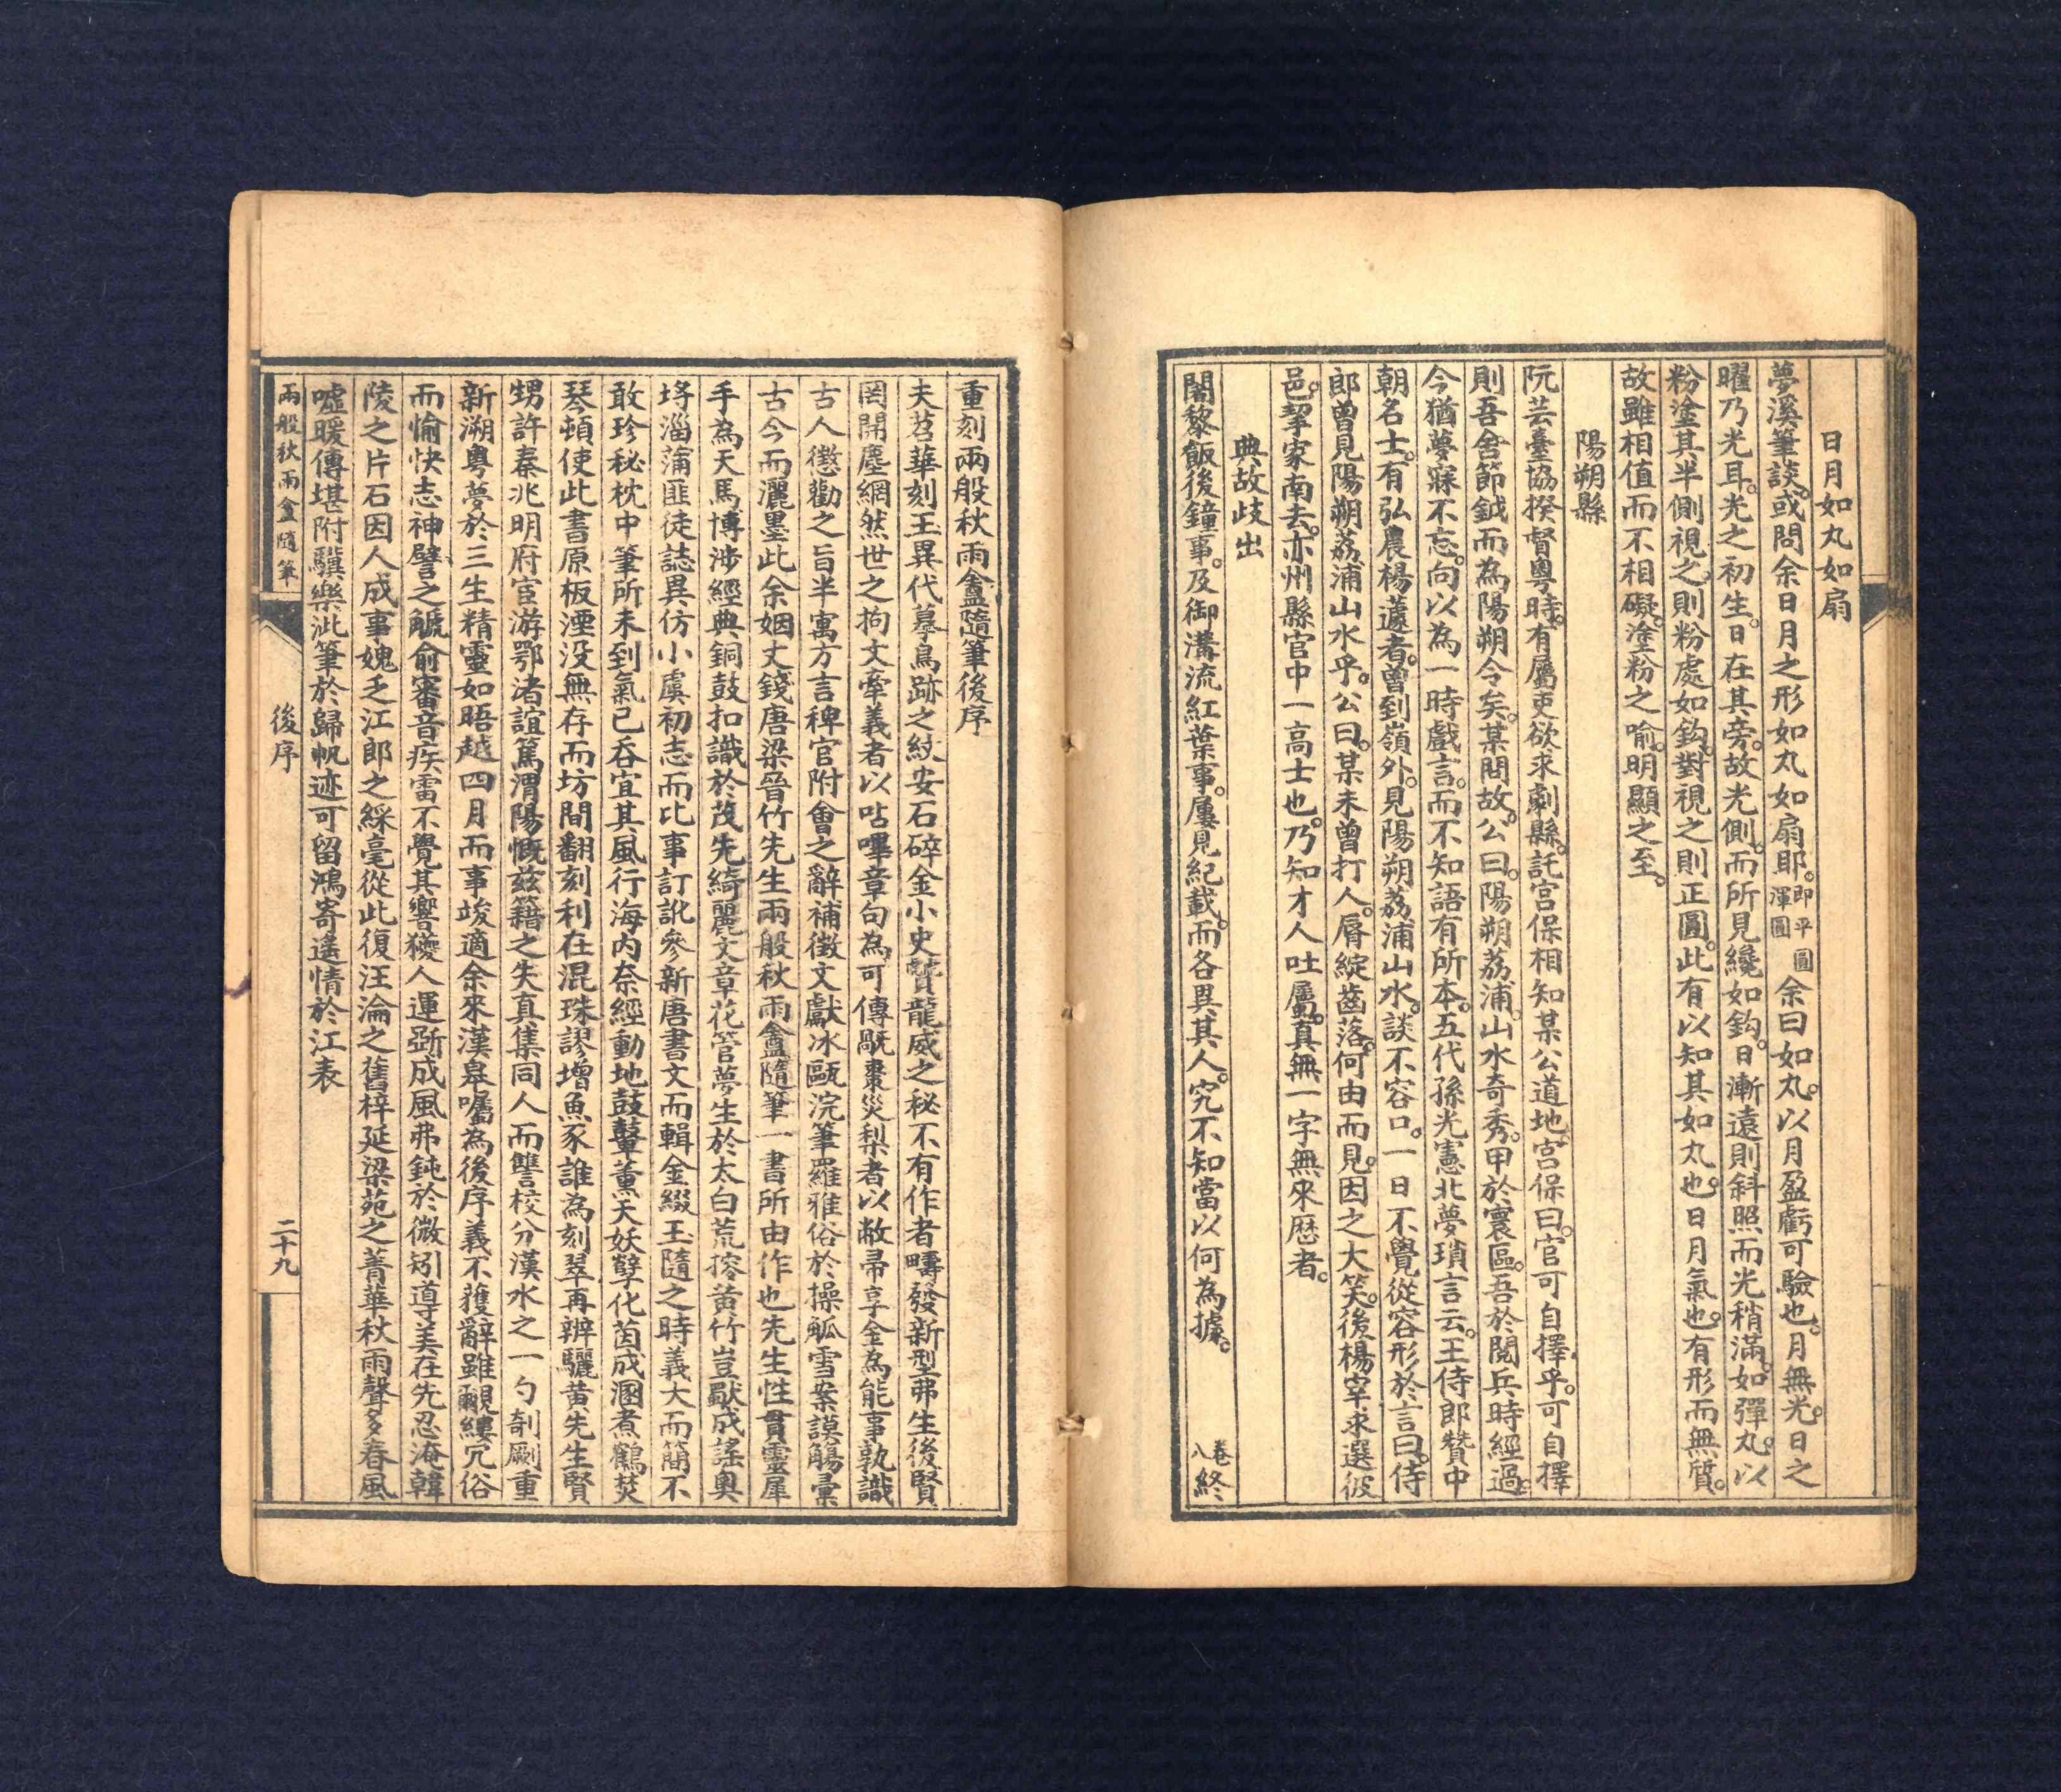 日月如丸如扇
夢溪筆談。或問余日月之形如丸如扇耶。即平圓渾圓余曰如丸。以月盈虧可驗也。月無光。日之
曜乃光耳。光之初生。日在其旁。故光側。而所見纔如鈎。日漸遠則斜照而光稍滿。如彈丸。以
粉塗其半側視之。則粉處如鈎。對視之則正圓。此有以知其如丸也。日月氣也。有形而無質。
故雖相值而不相礙。塗粉之喻。明顯之至。
陽朔縣
阮芸臺協揆督粵時。有屬吏欲求劇縣。託宮保相知某公道地。宮保曰。官可自擇乎。可自擇
則吾舍節鉞而為陽朔令矣。某問故。公曰。陽朔荔浦。山水奇秀。甲於寰區。吾於閱兵時經過。
今猶夢寐不忘。向以為一時戲言。而不知語有所本。五代孫光憲北夢瑣言云。王侍郎贊中
朝名士。有弘農楊蘧者。曾到嶺外。見陽朔荔浦山水。談不容口。一日不覺從容形於言曰。侍
郎曾見陽朔荔浦山水乎。公曰。某未曾打人。脣綻齒落。何由而見。因之大笑。後楊宰求選彼
邑。挈家南去。亦州縣官中一高士也。乃知才人吐屬。真無一字無來歷者。
典故歧出
闍黎飯後鐘事。及御溝流紅葉事。屢見紀載。而各異其人。究不知當以何為據。
卷八終
重刻兩般秋雨盦隨筆後序
夫苕華刻玉異代摹鳥跡之紋安石碎金小史贊龍威之秘不有作者疇發新型弗生後賢
罔開塵網然世之拘文牽義者以呫嗶章句為可傳厭棗災梨者以敝帚享金為能事孰識
古人懲勸之旨半寓方言稗官附會之辭補徵文獻冰甌浣筆羅雅俗於操觚雪案謨觴彙
古今而灑墨此余姻丈錢唐梁晉竹先生兩般秋雨盦隨筆一書所由作也先生性貫靈犀
手為天馬博涉經典銅鼓扣識於茂先綺麗文章花管夢生於太白荒搾黃竹豈歇成謠奧
埓淄蒲匪徒誌異仿小虞初志而比事訂訛參新唐書文而輯金綴玉隨之時義大而簡不
敢珍秘枕中筆所未到氣已吞宜其風行海內奈經動地鼓鼙薰天妖孽化茵成溷煮鶴焚
琴頓使此書原板湮没無存而坊間翻刻利在混珠謬增魚豕誰為刻翠再辨驪黃先生賢
甥許秦兆明府宦游鄂渚誼篤渭陽慨茲籍之失真集同人而讐校分漢水之一勺剞劂重
新溯粵夢於三生精靈如晤越四月而事竣適余來漢皋囑為後序義不獲辭雖覼縷冗俗
而愉快志神譬之觿俞審音疾雷不覺其響獿人運斲成風弗鈍於微矧導美在先忍淹韓
陵之片石因人成事媿乏江郎之綵毫從此復汪淪之舊梓延梁苑之菁華秋雨聲多春風
噓暖傳堪附驥樂泚筆於歸帆迹可留鴻寄遙情於江表
兩般秋雨盦隨筆
後序
二十九